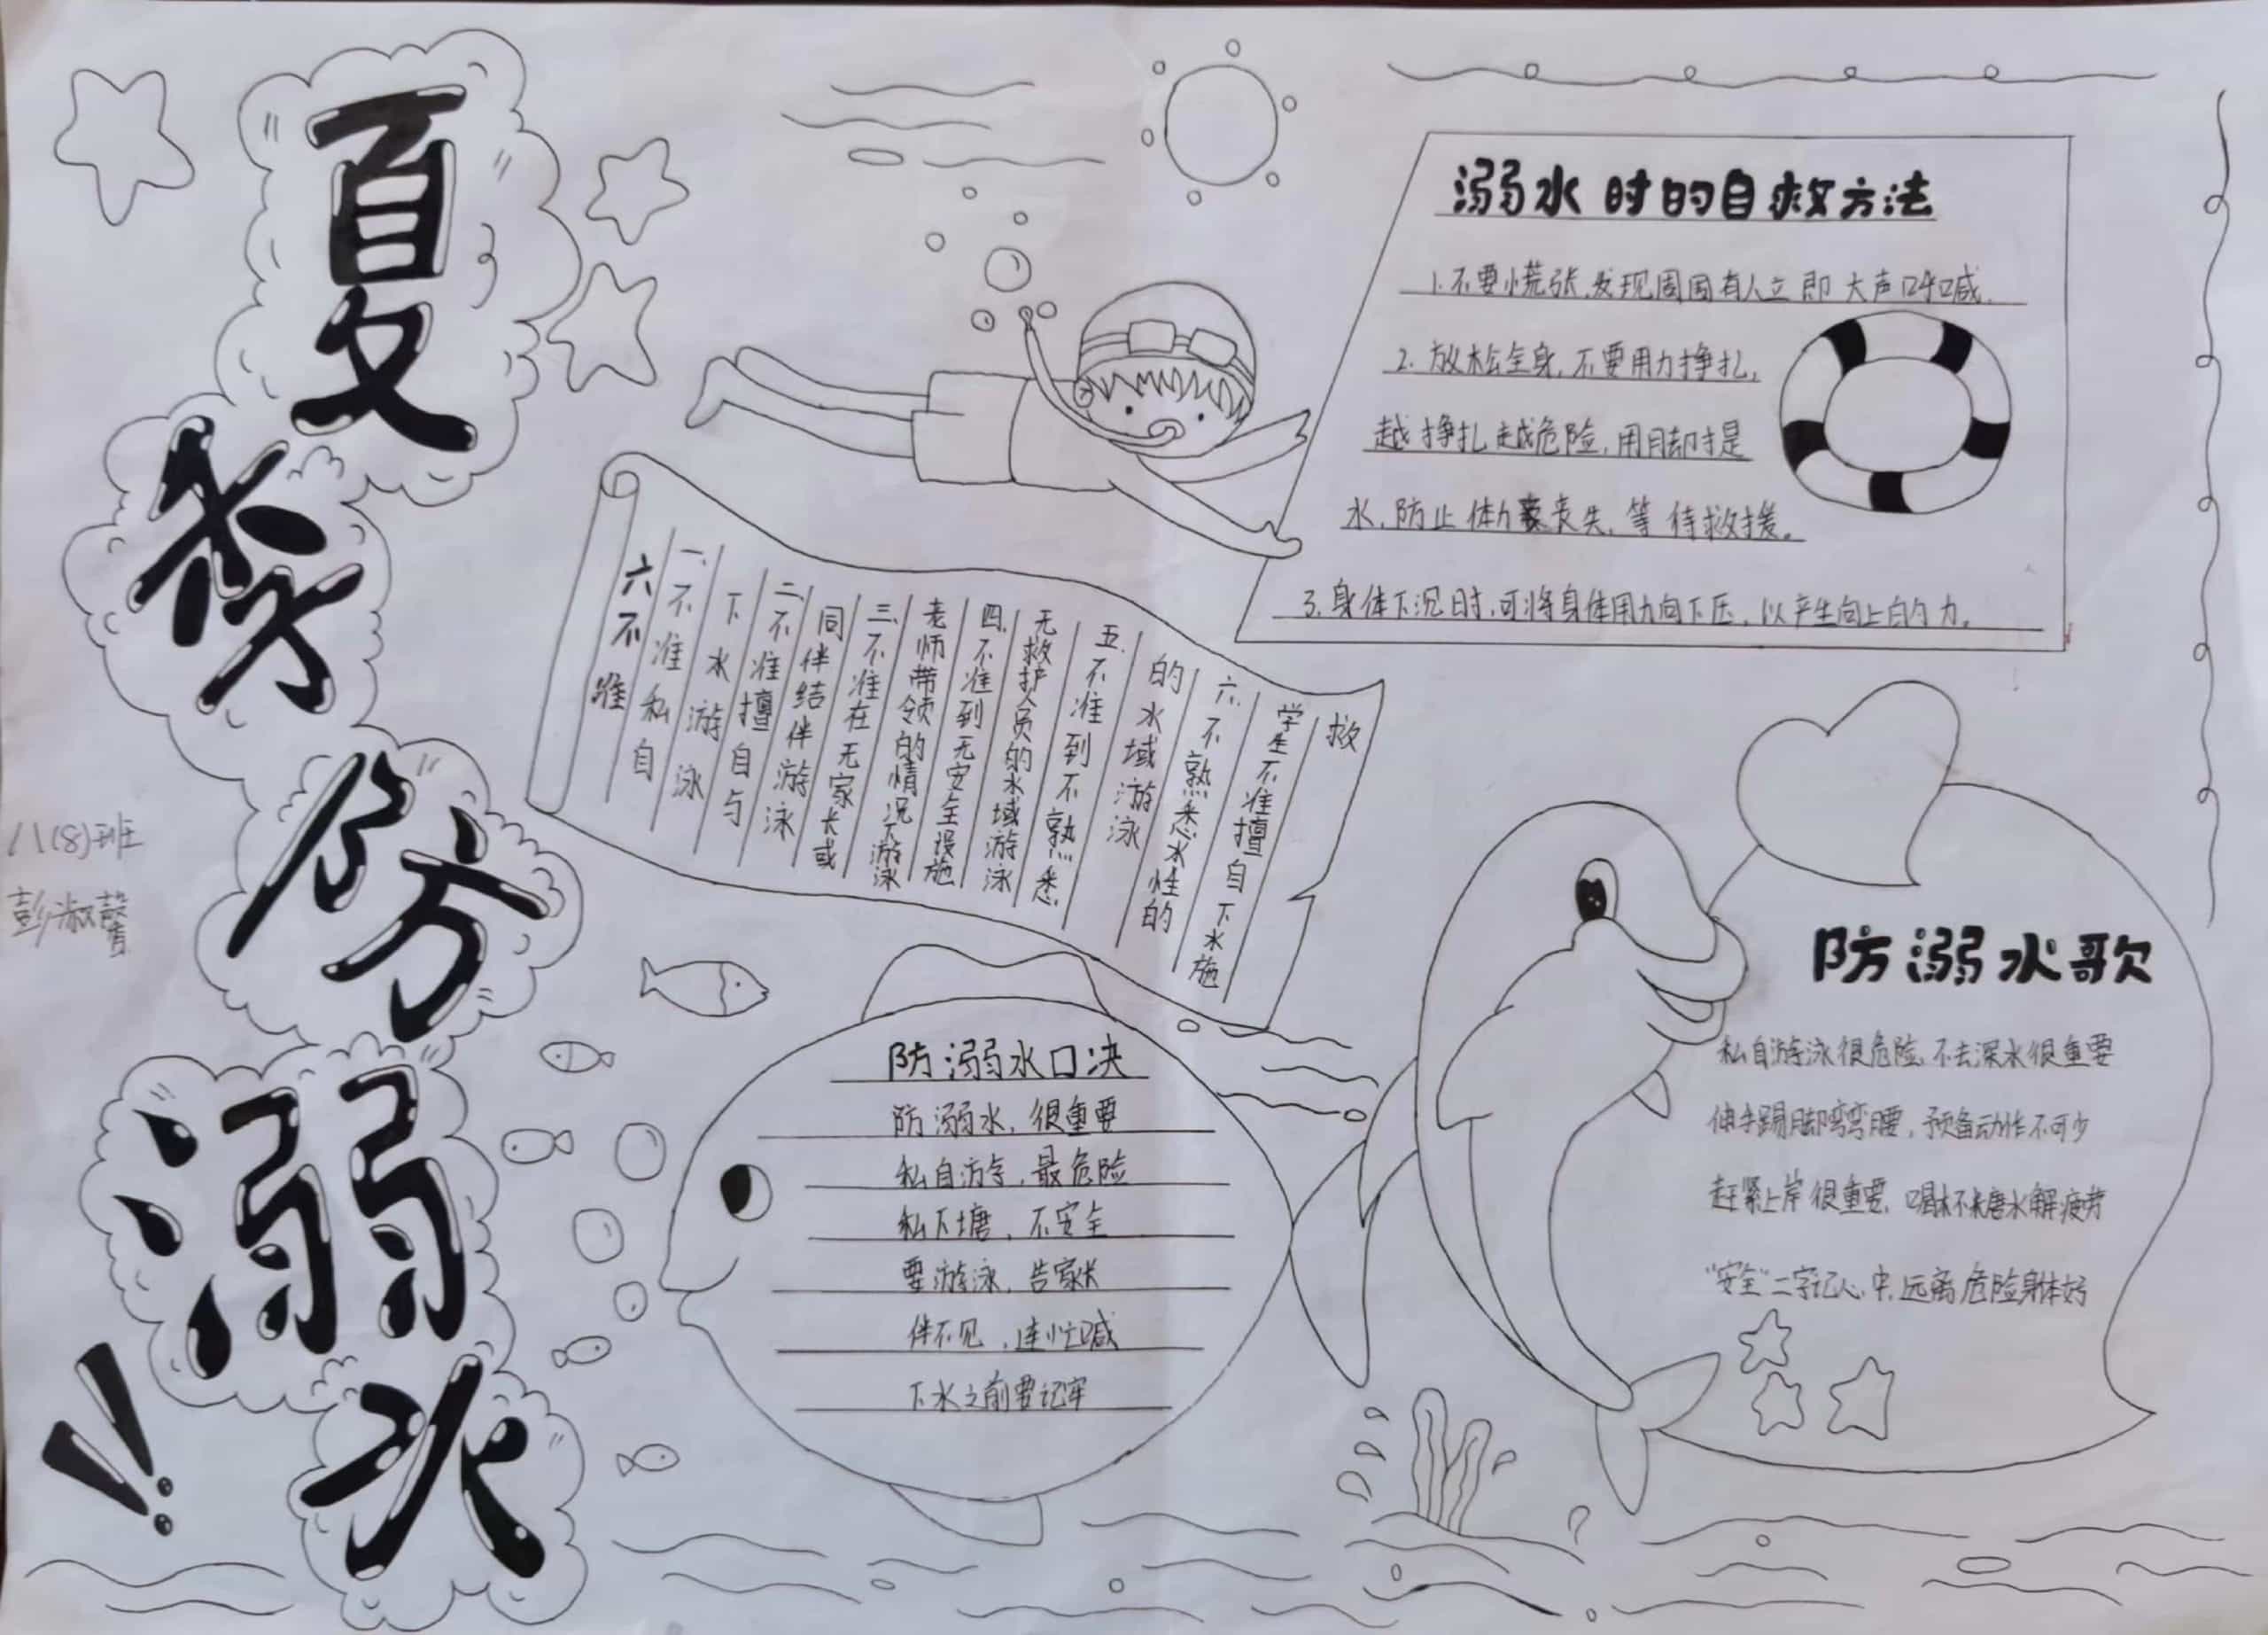 夏季防溺水!!
八(8)班
彭淑馨
溺水时的自救方法
1.不要慌张,发现周围有人立即大声呼喊.
2.放松全身,不要用力挣扎,
越挣扎越危险,用脚扌是
水,防止体力丧失,等待救援。
3.身体下沉时,可将身体用力向下压,以产生向上的力。
六不准
一、不准私自
下水游泳
二、不准擅自与
同伴结伴游泳
三、不准在无家长或
老师带领的情况下游泳
四、不准到无安全设施
无救护人员的水域游泳
五、不准到不熟悉
的水域游泳
六、不熟悉水性的
学生不准擅自下水施
救
防溺水口决
防溺水,很重要
私自游,最危险
私下塘,不安全
要游泳,告家长
伴不见,连忙喊
下水之前要记牢
防溺水歌
私自游泳很危险,不去深水很重要
伸手踢脚弯弯腰,预备动作不可少
赶紧上岸很重要,喝杯糖水解疲劳
"安全"二字记心中,远离危险身体好